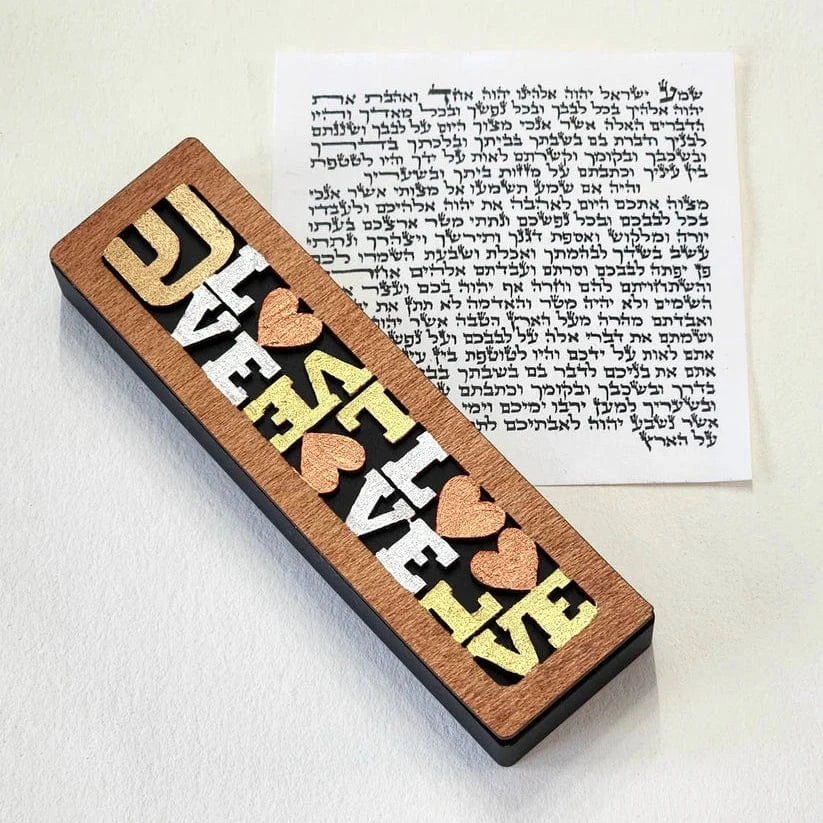 ש
LOVE
LOVE
LOVE
LOVE
שמע ישראל יהוה אלהינו יהוה אחד ואהבת את
יהוה אלהיך בכל לבבך ובכל נפשך ובכל מאדך והיו
הדברים האלה אשר אנכי מצוך היום על לבבך ושננתם
לבניך ודברת בם בשבתך בביתך ובלכתך בדרך
ובשכבך ובקומך וקשרתם לאות על ידך והיו לטטפת
בין עיניך וכתבתם על מזזות ביתך ובשעריך
והיה אם שמע תשמעו אל מצותי אשר אנכי
מצוה אתכם היום לאהבה את יהוה אלהיכם ולעבדו
בכל לבבכם ובכל נפשכם ונתתי מטר ארצכם בעתו
יורה ומלקוש ואספת דגנך ותירשך ויצהרך ונתתי
עשב בשדך לבהמתך ואכלת ושבעת השמרו לכם
פן יפתה לבבכם וסרתם ועבדתם אלהים
והשתחויתם להם וחרה אף יהוה בכם
השמים ולא יהיה מטר והאדמה לא תתן את
ואבדתם מהרה מעל הארץ הטבה אשר יהוה
ושמתם את דברי אלה על לבבכם ועל
אתם לאות על ידכם והיו לטוטפת בין
אתם את בניכם לדבר בם בשבתך
בדרך ובשכבך ובקומך וכתבתם
ובשעריך למען ירבו ימיכם וימי
אשר נשבע יהוה לאבתיכם
על הארץ